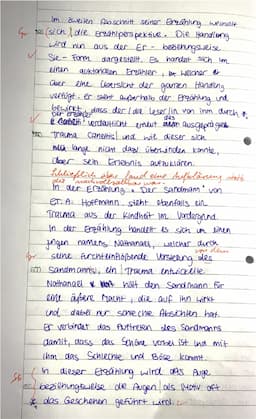 Im zweiten Abschnitt seiner Erzählung wechselt
Gr (sich) die Erzählperspektive. Die Handlung
wird nun aus der Er- beziehungsweise
Sie-Form dargestellt. Es handelt sich um
einen auktorialen Erzähler, welcher
über eine Übersicht der ganzen Handlung
verfügt. er steht außerhalb der Erzählung und
bewirkt, dass der/die Leser/in von ihm durch
der Erzähler verdeutlicht erneut das ausgeprägte
Trauma Canettis und wie dieser sich
lange nicht dazu überwinden konnte,
über sein Erlebnis aufzuklären.
Schließlich aber fand eine Aufklärung statt
die war
In der Erzählung „Der Sandmann" von
E.T.A. Hoffmann steht ebenfalls ein
Trauma aus der Kindheit im Vordergrund.
In der Erzählung handelt es sich um einen
jungen namens Nathanael, welcher durch
Gr seine furchteinflößende Vorstellung des
vor dem
Sandmanns, ein Trauma entwickelte.
Nathanael hält den Sandmann für
eine äußere Macht, die auf ihn wirkt
und dabei nur schlechte Absichten hat.
Er verbindet das Auftreten des Sandmanns
damit, dass das Schöne vorbei ist und mit
ihm das Schlechte und Böse kommt.
In dieser Erzählung wird das Auge
beziehungsweise die Augen als Motiv oft
das Geschehen geführt wird.